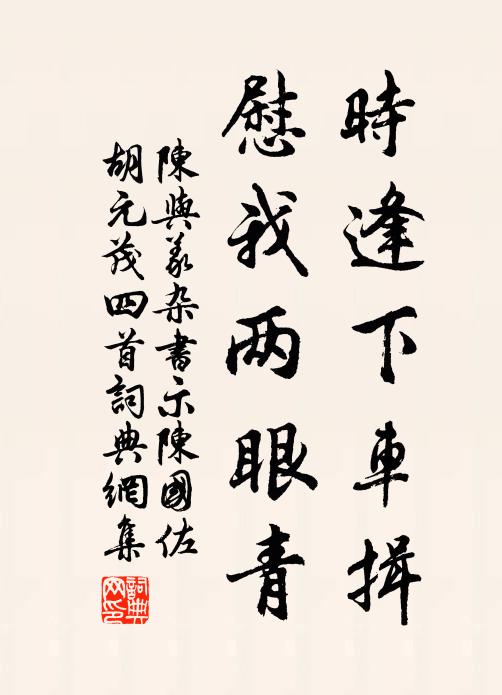 時逢下車揖
慰我两眼青
陳與義杂書示陳國佐
胡元茂四首詞典網集
詞典网印